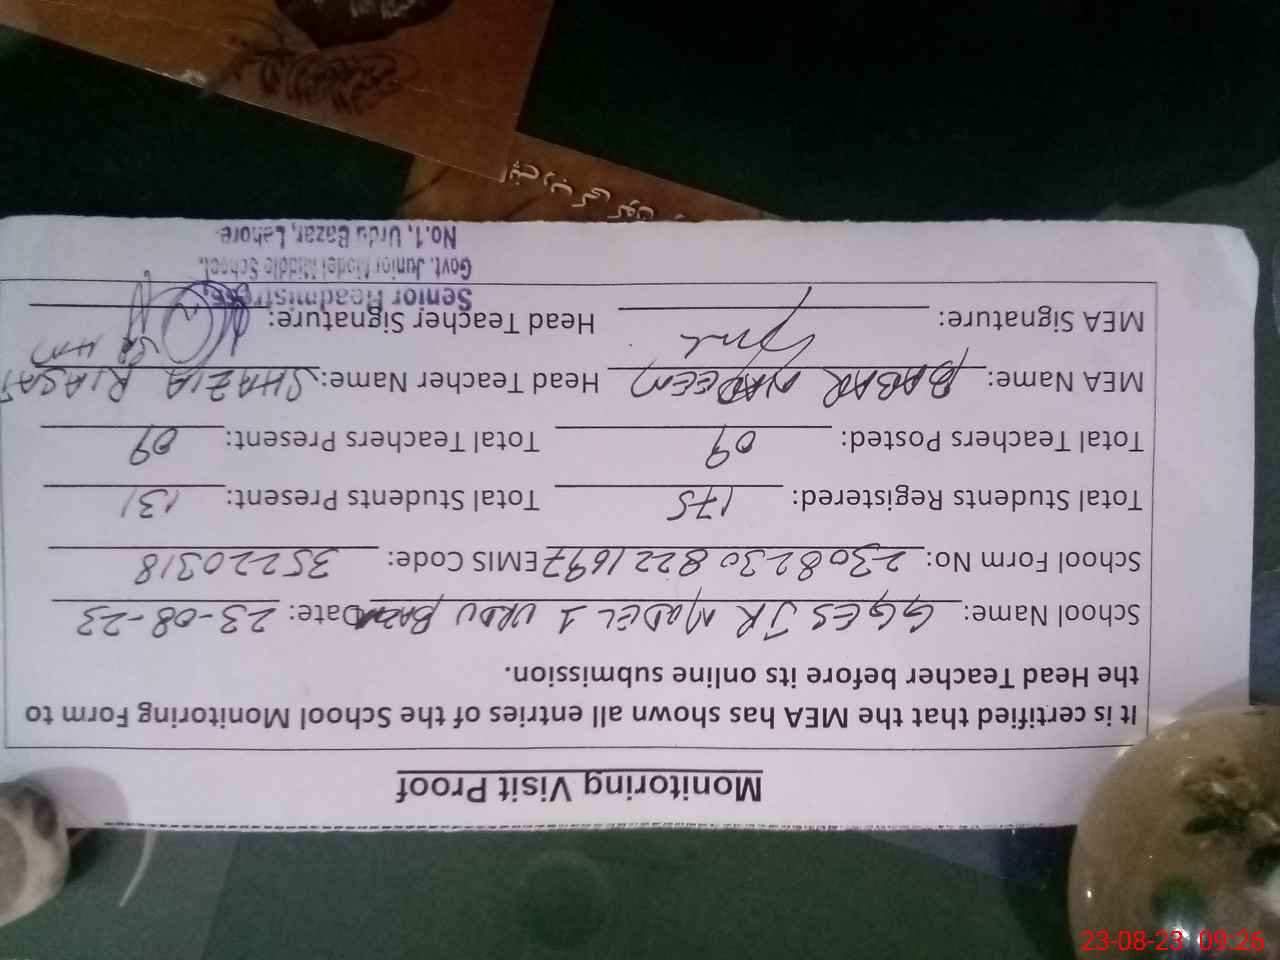 Monitoring Visit Proof
It is certified that the MEA has shown all entries of the School Monitoring Form to
the Head Teacher before its online submission.
School Name: GGES JR MODEL 1 URDU BAZAR Date: 23-08-23
School Form No: 23082308221697 EMIS Code: 35220318
Total Students Registered: 175 Total Students Present: 131
Total Teachers Posted: 09 Total Teachers Present: 09
MEA Name: BABAR NADEEM Head Teacher Name: SHAZIA RIASAT
SR HM
MEA Signature: Head Teacher Signature:
Senior Headmistress,
Govt. Junior Model Middle School,
No.1, Urdu Bazar, Lahore.
23-08-23 09:26